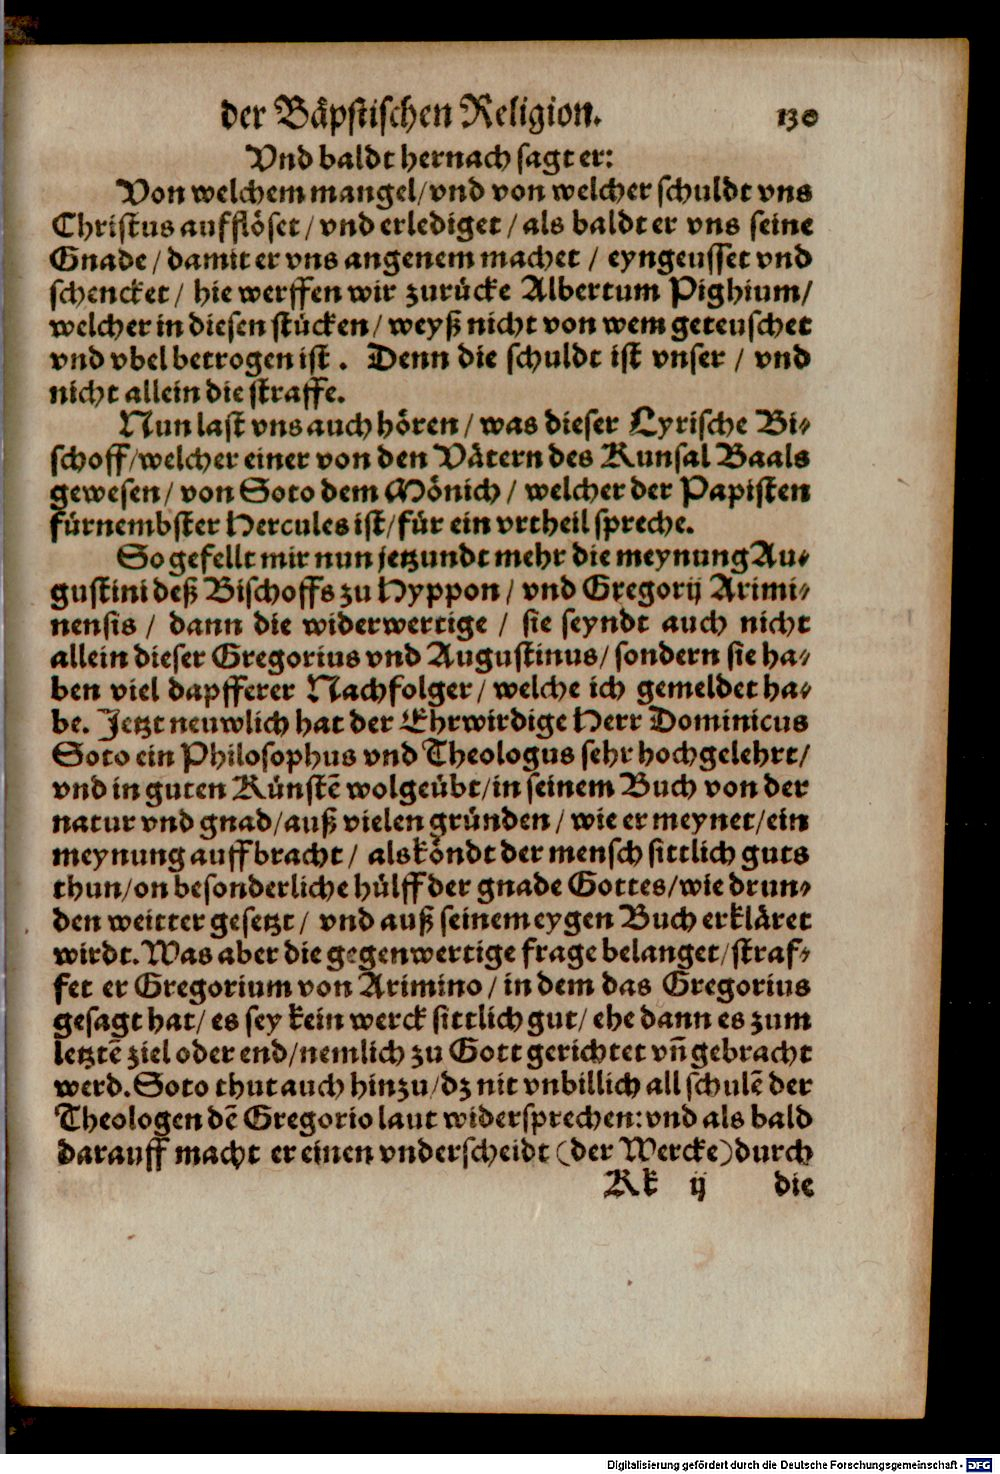 der Bäpstischen Religion. 130
Vnd baldt hernach sagt er:
Von welchem mangel/vnd von welcher schuldt vns
Christus aufflöset/ vnd erlediget/ als baldt er vns seine
Gnade/ damit er vns angenem machet/ eyngeusset vnd
schencket/ hie werffen wir zurücke Albertum Pighium/
welcher in diesen stücken/ weyß nicht von wem geteuschet
vnd vbel betrogen ist. Denn die schuldt ist vnser/ vnd
nicht allein die straffe.
Nun last vns auch hören/ was dieser Lyrische Bi-
schoff/welcher einer von den Vätern des Kunsal Baals
gewesen/ von Soto dem Mönich/ welcher der Papisten
fürnembster Hercules ist/für ein vrtheil spreche.
So gefellt mir nun jetzundt mehr die meynung Au-
gustini deß Bischoffs zu Hyppon/ vnd Gregorij Arimi-
nensis/ dann die widerwertige/ sie seyndt auch nicht
allein dieser Gregorius vnd Augustinus/ sondern sie ha-
ben viel dapfferer Nachfolger/ welche ich gemeldet ha-
be. Jetzt neuwlich hat der Ehrwirdige Herr Dominicus
Soto ein Philosophus vnd Theologus sehr hochgelehrt/
vnd in guten Künstē wolgeübt/in seinem Buch von der
natur vnd gnad/auß vielen gründen/ wie er meynet/ein
meynung auffbracht/ als köndt der mensch sittlich guts
thun/on besonderliche hülff der gnade Gottes/wie drun-
den weitter gesetzt/ vnd auß seinem eygen Buch erkläret
wirdt. Was aber die gegenwertige frage belanget/straf-
fet er Gregorium von Arimino/ in dem das Gregorius
gesagt hat/ es sey kein werck sittlich gut/ ehe dann es zum
letztē ziel oder end/nemlich zu Gott gerichtet vn̄ gebracht
werd. Soto thut auch hinzu/dz nit vnbillich all schulē der
Theologen dē Gregorio laut widersprechen: vnd als bald
darauff macht er einen vnderscheidt (der Wercke) durch
Kk ij die
Digitalisierung gefördert durch die Deutsche Forschungsgemeinschaft - DFG